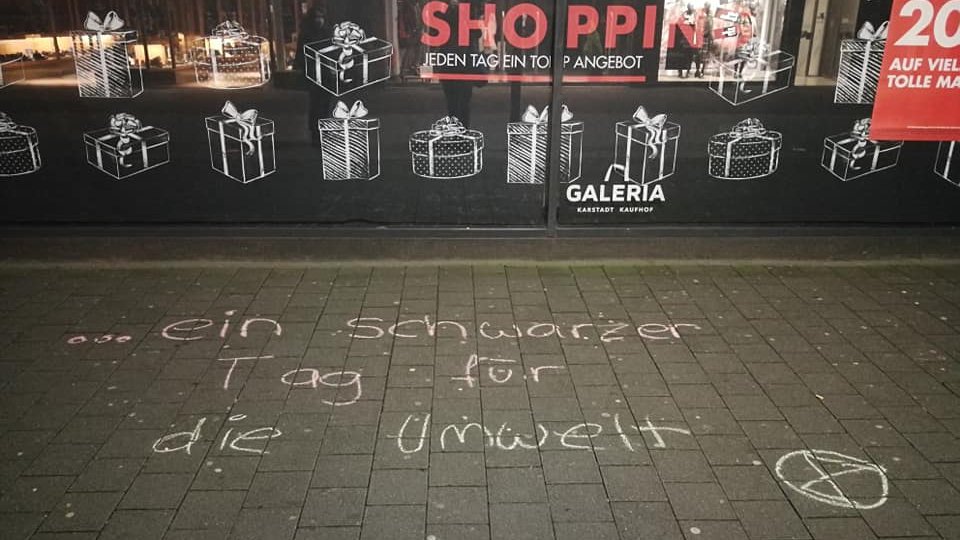 SHOPPING
JEDEN TAG EIN TOP ANGEBOT
20
AUF VIEL
TOLLE MA
GALERIA
KARSTADT KAUFHOF
... ein schwarzer
Tag für
die Umwelt